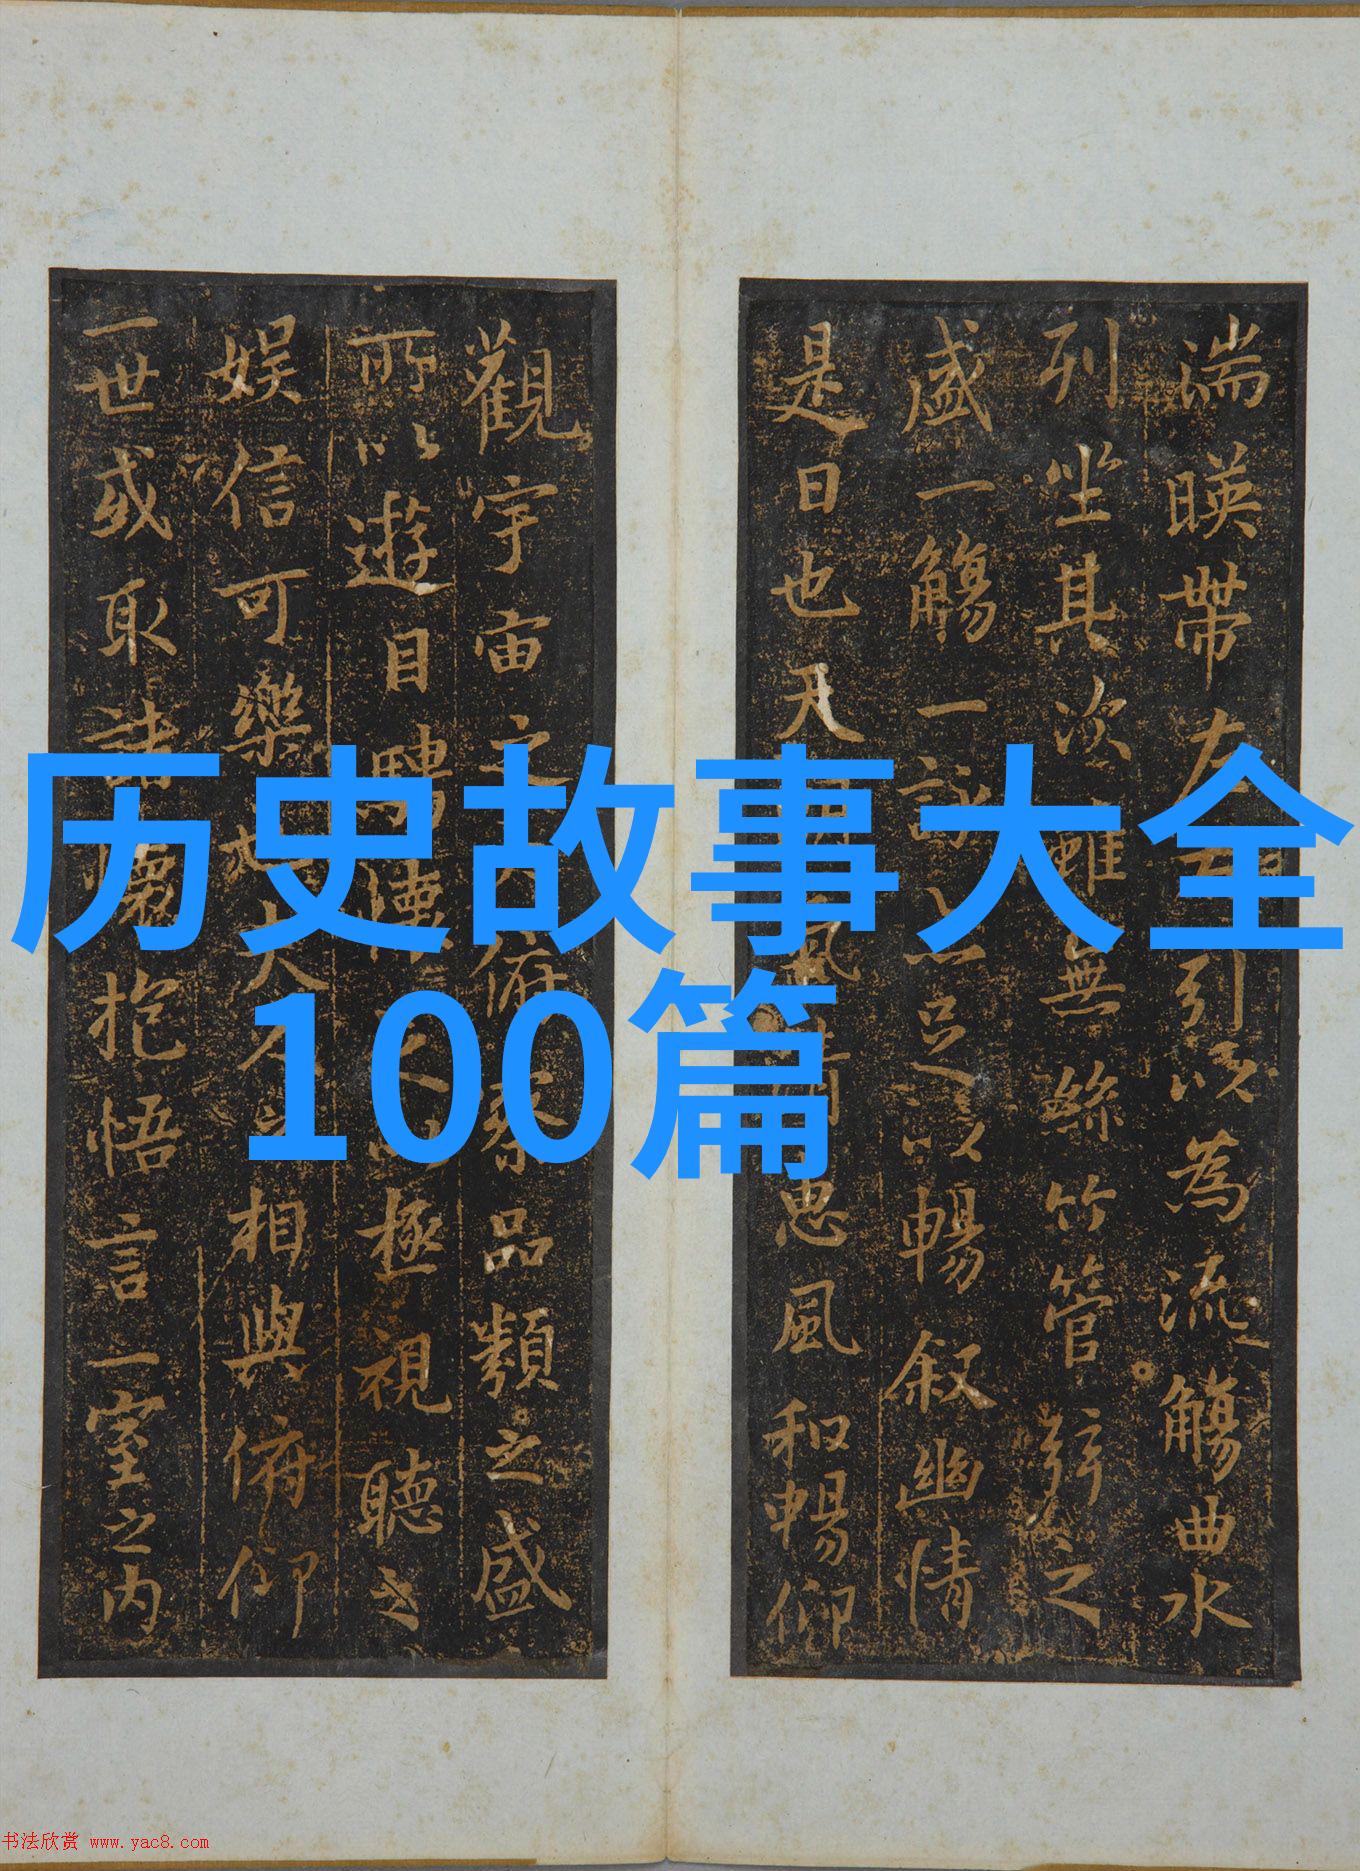 湍暎帶左引以為流觴曲水
列坐其次雖無絲竹管弦之
盛一觴一詠亦足以暢叙幽情
是日也天氣恵風和暢仰
觀宇宙之俯察品類之盛
所以遊目騁懷極視聽之
娱信可樂夫相與俯仰
一世或取諸懷抱悟言一室之内
历史故事大全
100篇
书法欣赏 www.yac8.com